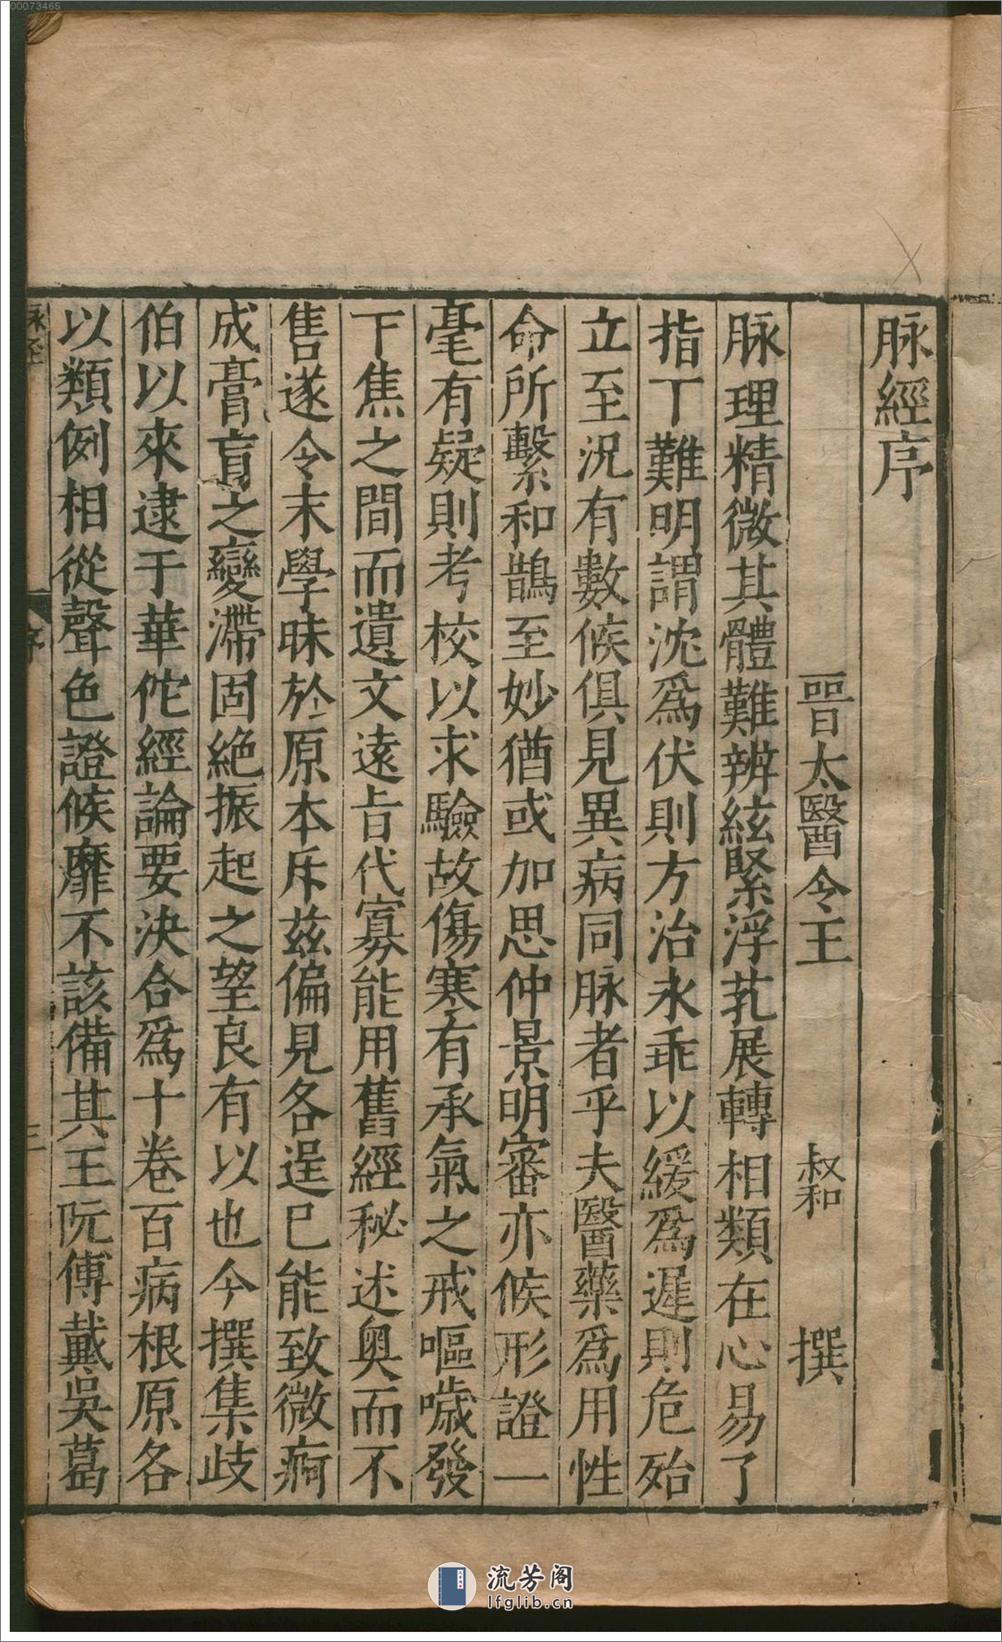 脉經序
晉太醫令王 叔和 撰
脉理精微其體難辨絃緊浮芤展轉相類在心易了
指下難明謂沈爲伏則方治永乖以緩爲遲則危殆
立至況有數候俱見異病同脉者乎夫醫藥爲用性
命所繫和鵲至妙猶或加思仲景明審亦候形證一
毫有疑則考校以求驗故傷寒有承氣之戒嘔噦發
下焦之間而遺文遠旨代寡能用舊經秘述奧而不
售遂令末學昧於原本斥茲偏見各逞已能致微痾
成膏肓之變滯固絕振起之望良有以也今撰集歧
伯以來逮于華佗經論要決合爲十卷百病根原各
以類例相從聲色證候靡不該備其王阮傅戴吳葛
脉經
序
三
00073465
流芳阁
lfglib.cn